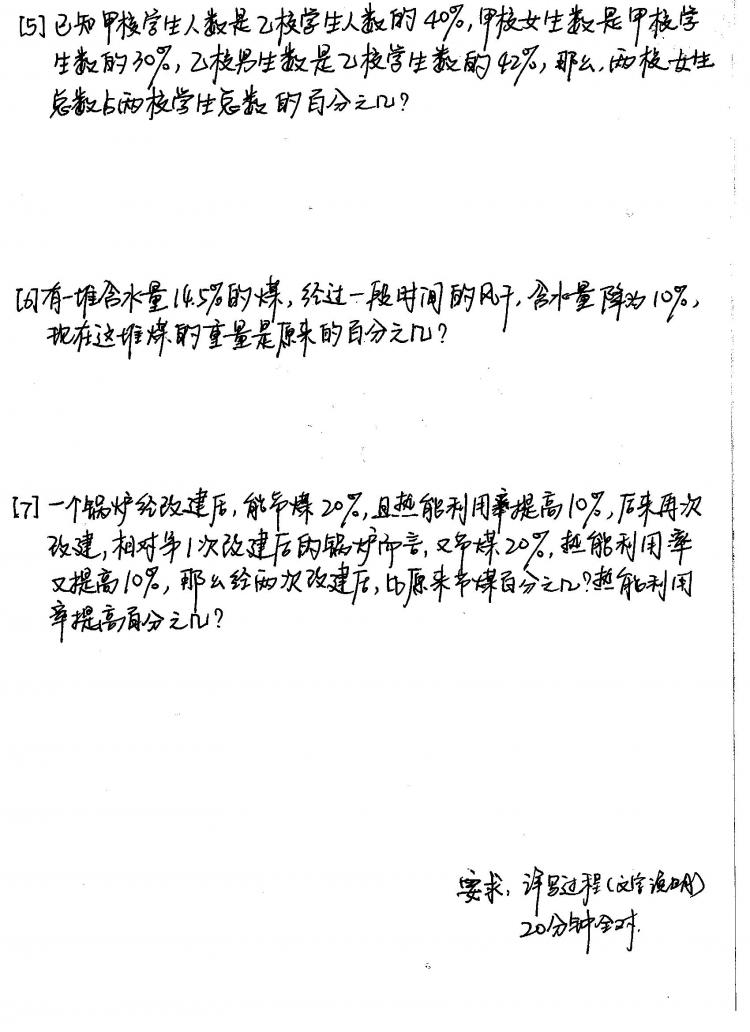 [5] 已知甲校学生人数是乙校学生人数的40%,甲校女生数是甲校学
生数的30%,乙校男生数是乙校学生数的42%,那么,两校女生
总数占两校学生总数的百分之几?
[6] 有一堆含水量14.5%的煤,经过一段时间的风干,含水量降为10%,
现在这堆煤的重量是原来的百分之几?
[7] 一个锅炉经改建后,能节煤20%,且热能利用率提高10%,后来再次
改建,相对第1次改建后的锅炉而言,又节煤20%,热能利用率
又提高10%,那么经两次改建后,比原来节煤百分之几?热能利用
率提高百分之几?
要求:详写过程(文字说明)
20分钟全对.